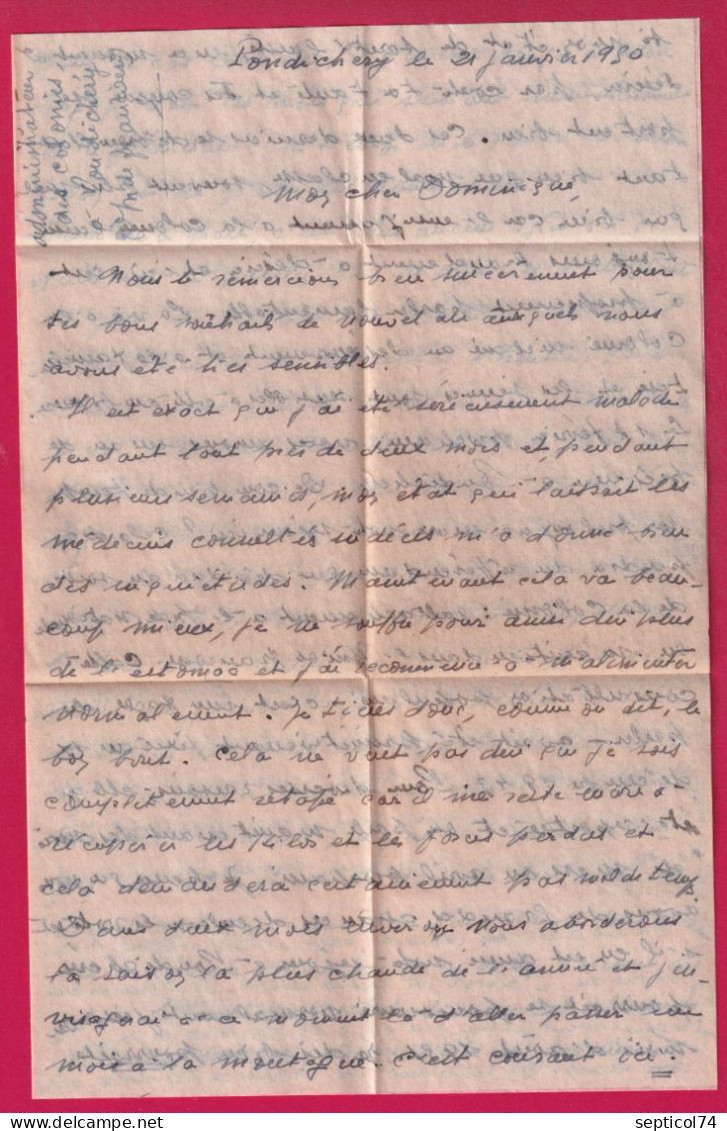 Administrateur
des colonies
à Pondichéry
Inde française
Pondichéry le 21 janvier 1950
Mon cher Dominique,
Nous te remercions bien sincèrement pour
tes bons souhaits de nouvel an auxquels nous
avons été très sensibles.
Il est exact que j'ai été sérieusement malade
pendant tout près de deux mois et, pendant
plusieurs semaines, mon état qui laissait les
médecins consultés indécis m'a donné bien
des inquiétudes. Maintenant cela va beau-
coup mieux, je ne souffre pour ainsi dire plus
de l'estomac et j'ai recommencé à m'alimenter
normalement. Je tiens donc, comme on dit, le
bon bout. Cela ne veut pas dire que je sois
complètement retapé car il me reste encore à
récupérer les kilos et les forces perdus et
cela demandera certainement pas mal de temps
Dans deux mois environ nous aborderons
la saison la plus chaude de l'année et j'en-
visagerai à ce moment là d'aller passer un
mois à la montagne. C'est courant ici.
septicol74